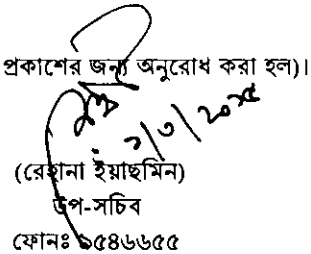 প্রকাশের জন্য অনুরোধ করা হল)।
(রেহানা ইয়াছমিন)
উপ-সচিব
ফোনঃ ৯৫৪৬৬৫৫